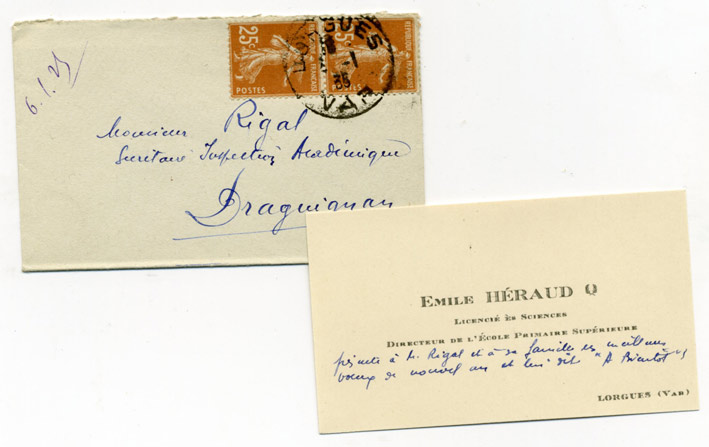 6.1.35
25c
RÉPUBLIQUE FRANÇAISE
POSTES
25c
RÉPUBLIQUE FRANÇAISE
POSTES
LORGUES
-1
35
VAR
Monsieur Rigal
Secrétaire Inspection Académique
Draguignan
EMILE HÉRAUD
LICENCIÉ ÈS SCIENCES
DIRECTEUR DE L'ÉCOLE PRIMAIRE SUPÉRIEURE
présente à M. Rigal et à sa famille ses meilleurs
voeux de nouvel an et lui dit "A Bientôt"
LORGUES (VAR)